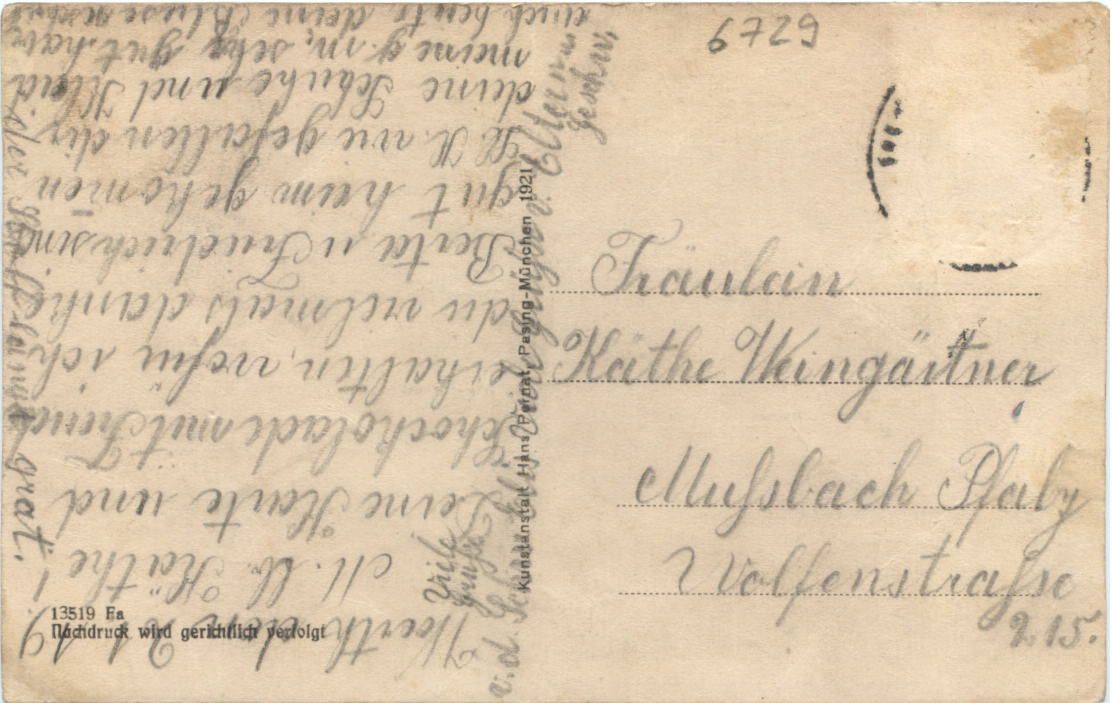 6729
Fräulein
Käthe Weingärtner
Mußbach Pfalz
Wolfenstraße
215.
Kunstanstalt Hans Pernat, Pasing-München 1921
13519 Fa
Nachdruck wird gerichtlich verfolgt
Woerth den
M. lb. Käthe!
Deine Karte und
Schockolade mit Freud
erhalten, wofür ich
dir vielmals danke
Berta u Friedrich sind
gut heim gekomen
wie gefallen dir
deine Schuhe und Kleid
meine sehr gut
auch heute deine Bluse
Viele
Grüße
v. d.
Viele Grüße v. Eltern u
Geschw.